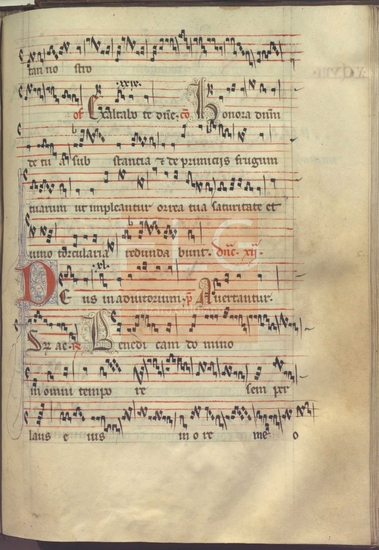 tan no stro
of. Exaltabo te dne. co Honora dnm
de tu sub stancia & de primicijs frugum
tuarum ut impleantur orrea tua saturitate et
uino torcularia redunda bunt. dnc. xij.
DE us in adiutorium. p. Auertantur.
Gr ac. re Benedi cam do mino
in omni tempo re sem per
laus e ius in o re me o